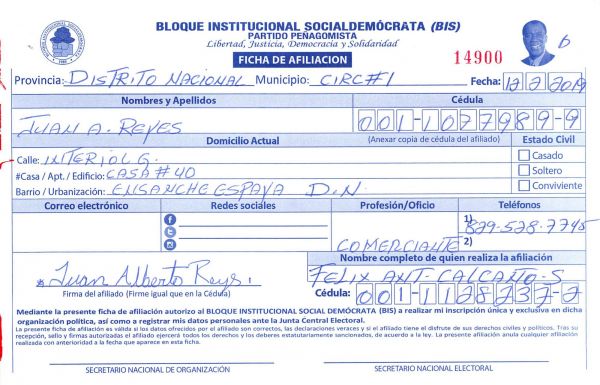 BLOQUE INSTITUCIONAL SOCIALDEMÓCRATA (BIS)
PARTIDO PEÑAGOMISTA
Libertad, Justicia, Democracia y Solidaridad
FICHA DE AFILIACION
14900
6
Provincia: DISTRITO NACIONAL Municipio: CIRC#1 Fecha: 12 2 2019
Nombres y Apellidos Cédula
JUAN A. REYES 001-1077989-9
Domicilio Actual (Anexar copia de cédula del afiliado) Estado Civil
Calle: INTERIOL G. Casado
#Casa / Apt. / Edificio: CASA #40 Soltero
Barrio / Urbanización: ENSANCHE ESPAYA D.N. Conviviente
Correo electrónico Redes sociales Profesión/Oficio Teléfonos
1) 829-528-7745
COMERCIANTE 2)
Nombre completo de quien realiza la afiliación
Juan Alberto Reys. FELIX ANT- CALCAÑO-S
Firma del afiliado (Firme igual que en la Cédula) Cédula: 001-1128237-2
Mediante la presente ficha de afiliación autorizo al BLOQUE INSTITUCIONAL SOCIAL DEMÓCRATA (BIS) a realizar mi inscripción única y exclusiva en dicha
organización política, así como a registrar mis datos personales ante la Junta Central Electoral.
La presente ficha de afiliación es válida si los datos ofrecidos por el afiliado son correctos, las declaraciones veraces y si el afiliado tiene el disfrute de sus derechos civiles y políticos. Tras su
recepción, sello y firmas autorizadas el afiliado ejercerá todos los derechos y los deberes estatutariamente sancionados, de acuerdo a la ley. La presente afiliación anula cualquier afiliación
realizada con anterioridad a la fecha que aparece en esta ficha.
SECRETARIO NACIONAL DE ORGANIZACIÓN SECRETARIO NACIONAL ELECTORAL